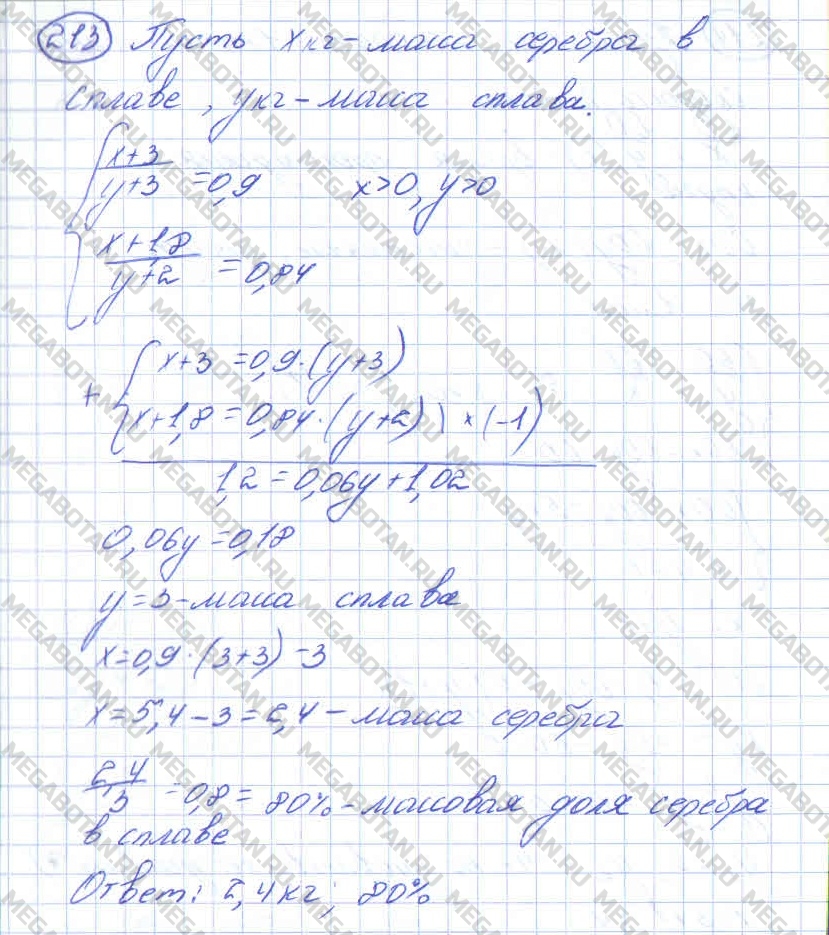 213 Пусть x кг - масса серебра в
сплаве, y кг - масса сплава.
x+3
y+3 = 0,9 x>0, y>0
x+1,8
y+2 = 0,84
+ x+3 = 0,9·(y+3)
x+1,8 = 0,84·(y+2) | ×(-1)
1,2 = 0,06y + 1,02
0,06y = 0,18
y = 3 - масса сплава
x = 0,9·(3+3) - 3
x = 5,4 - 3 = 2,4 - масса серебра
2,4
3 = 0,8 = 80% - массовая доля серебра
в сплаве
Ответ: 2,4 кг; 80%
MEGABOTAN.RU